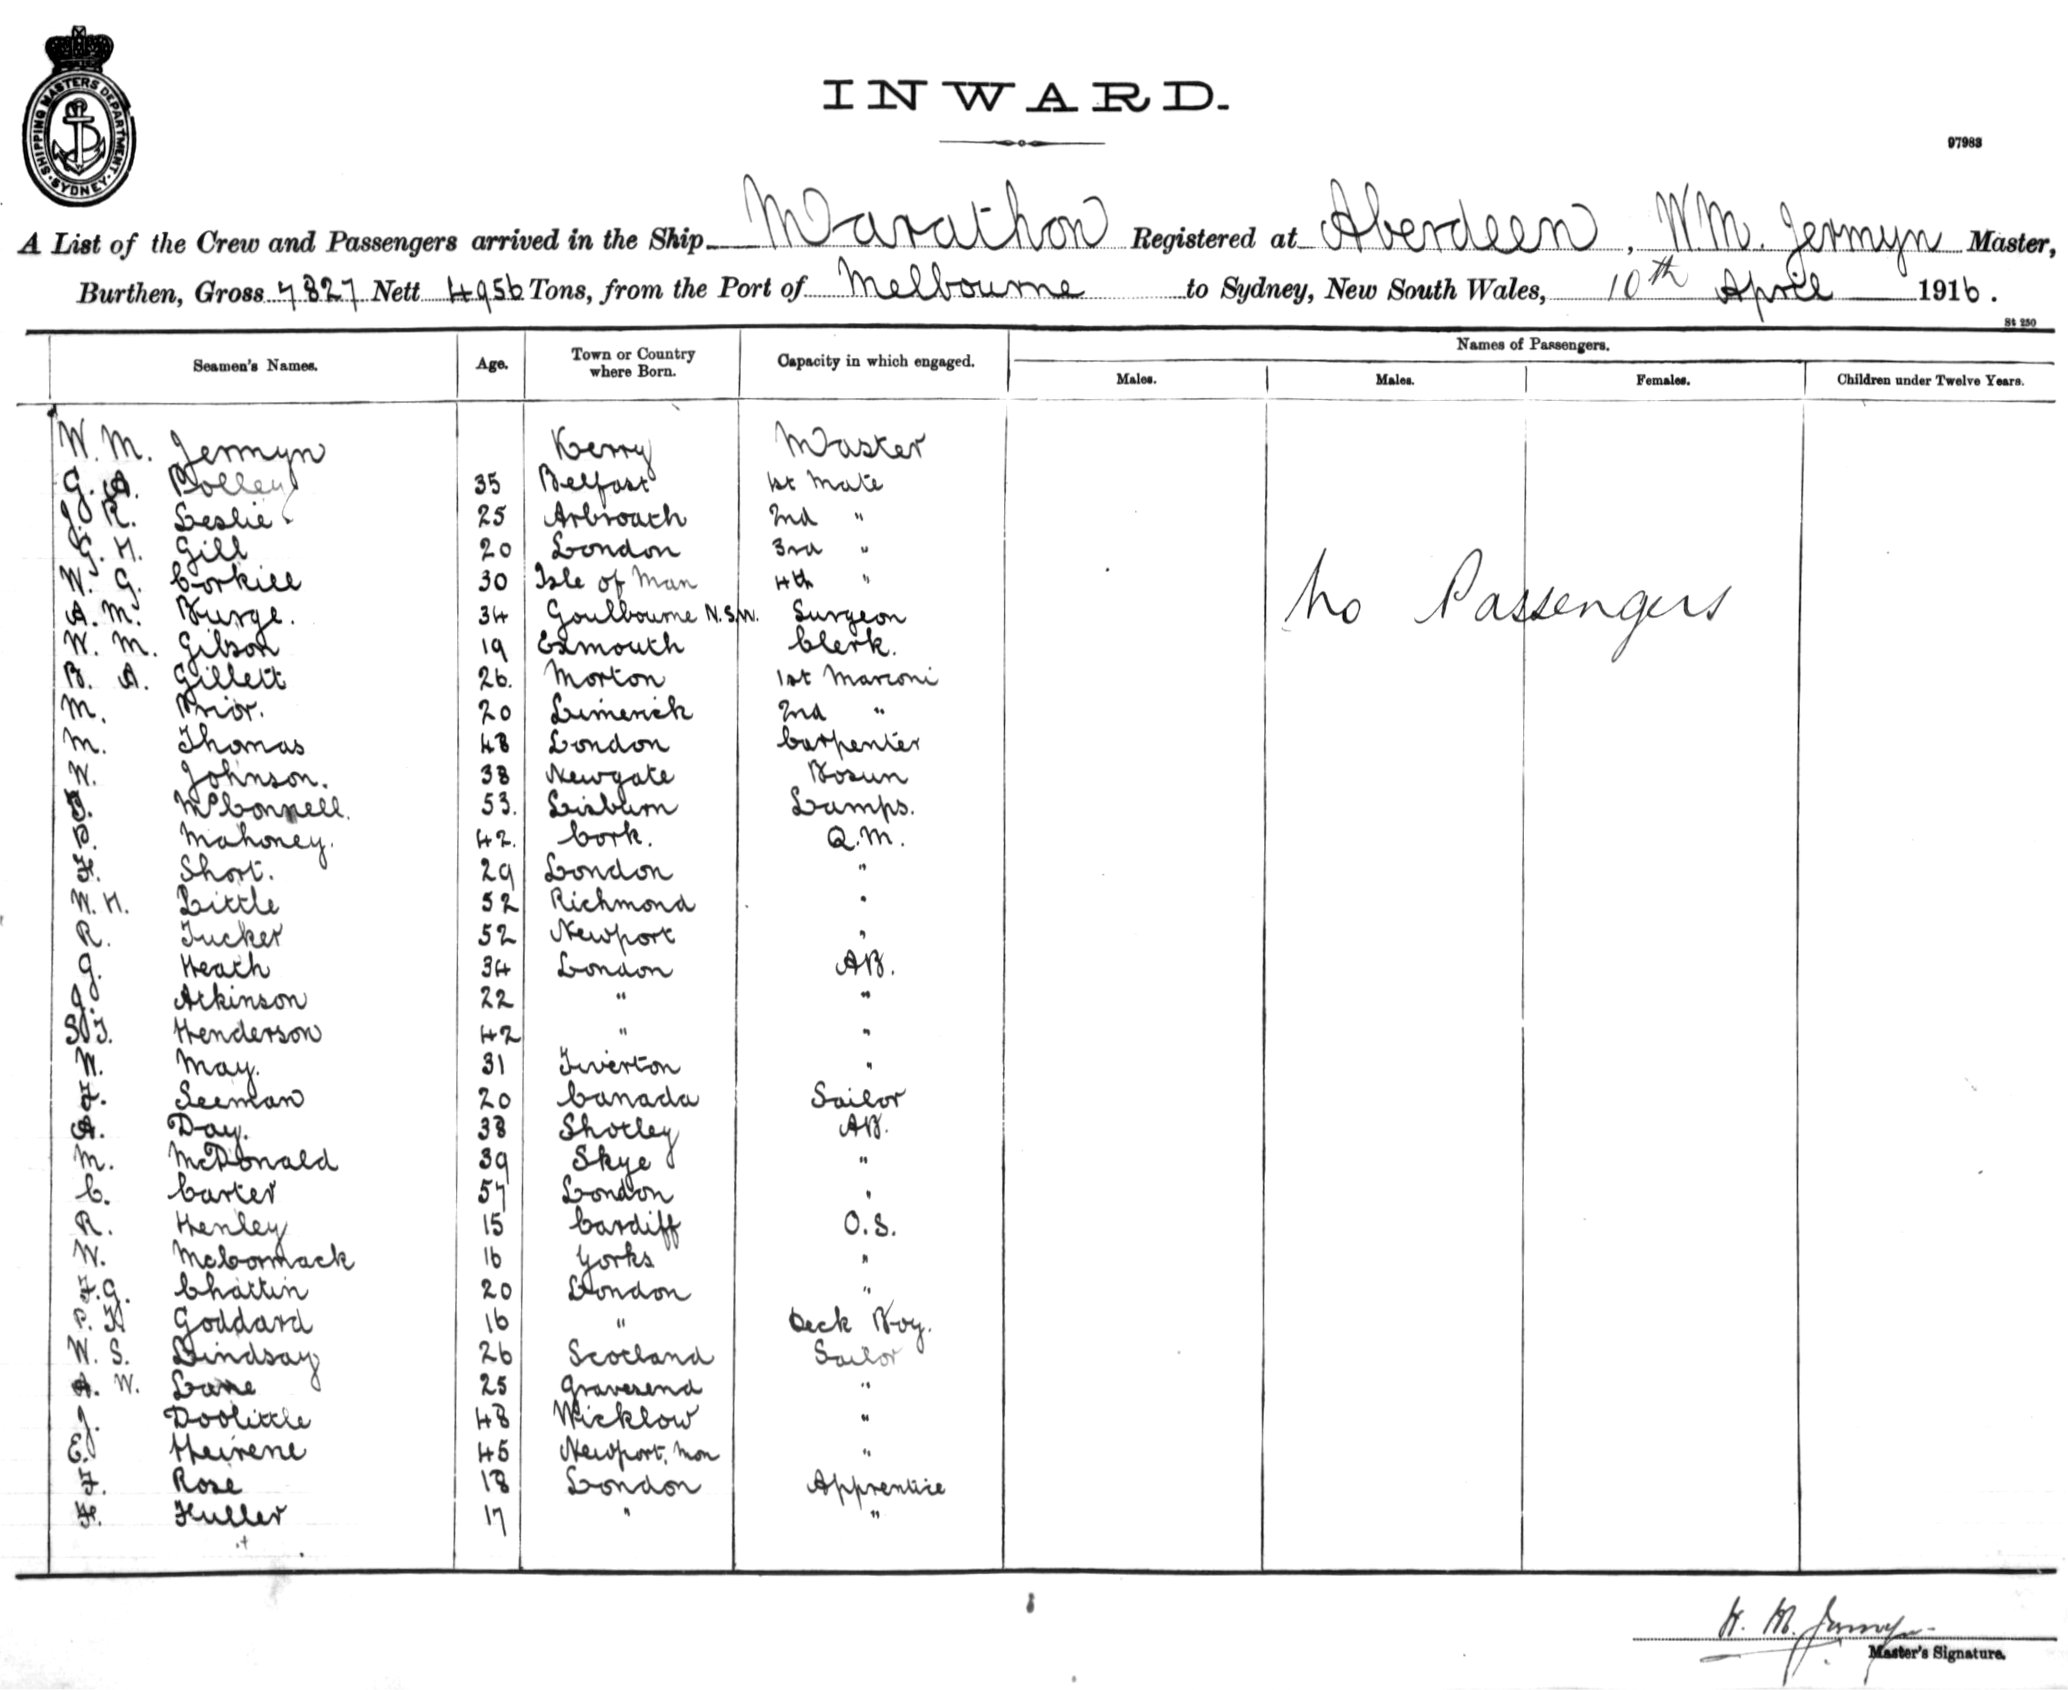 SHIPPING MASTERS DEPARTMENT
SYDNEY
INWARD.
97983
A List of the Crew and Passengers arrived in the Ship Marathon Registered at Aberdeen, W.M. Jermyn Master,
Burthen, Gross 7827 Nett 4956 Tons, from the Port of Melbourne to Sydney, New South Wales, 10th April 1916.
St 250
Seamen's Names. Age. Town or Country where Born. Capacity in which engaged. Names of Passengers.
Males. Males. Females. Children under Twelve Years.
W. M. Jermyn Kerry Master
G. A. Bolley 35 Belfast 1st Mate
J. R. Leslie 25 Arbroath 2nd "
G. H. Gill 20 London 3rd "
W. G. Corkill 30 Isle of Man 4th "
A. M. Burge. 34 Goulbourne N.S.W. Surgeon
No Passengers
W. M. Gibson 19 Exmouth Clerk.
B. A. Gillett 26. Morton 1st Marconi
M. Prior. 20 Limerick 2nd "
M. Thomas 48 London Carpenter
W. Johnson. 38 Newgate Bosun
McConnell. 53. Lisburn Lamps.
Mahoney. 42. Cork. Q.M.
F. Short. 29 London "
W. H. Little 52 Richmond "
R. Tucker 52 Newport "
G. Heath 34 London AB.
J. Atkinson 22 " "
S. J. Henderson 42 " "
W. May. 31 Tiverton "
F. Seeman 20 Canada Sailor
A. Day. 38 Shotley AB.
M. McDonald 39 Skye "
C. Carter 57 London "
R. Henley 15 Cardiff O.S.
W. McCormack 16 Yorks "
F. G. Chattin 20 London "
P. H Goddard 16 " Deck Boy.
W. S. Lindsay 26 Scotland Sailor
A. W. Lane 25 Gravesend "
J. Doolittle 48 Wicklow "
E. Heirene 45 Newport, Mon "
F. Rose 18 London Apprentice
F. Fuller 17 " "
W. M. Jermyn
Master's Signature.